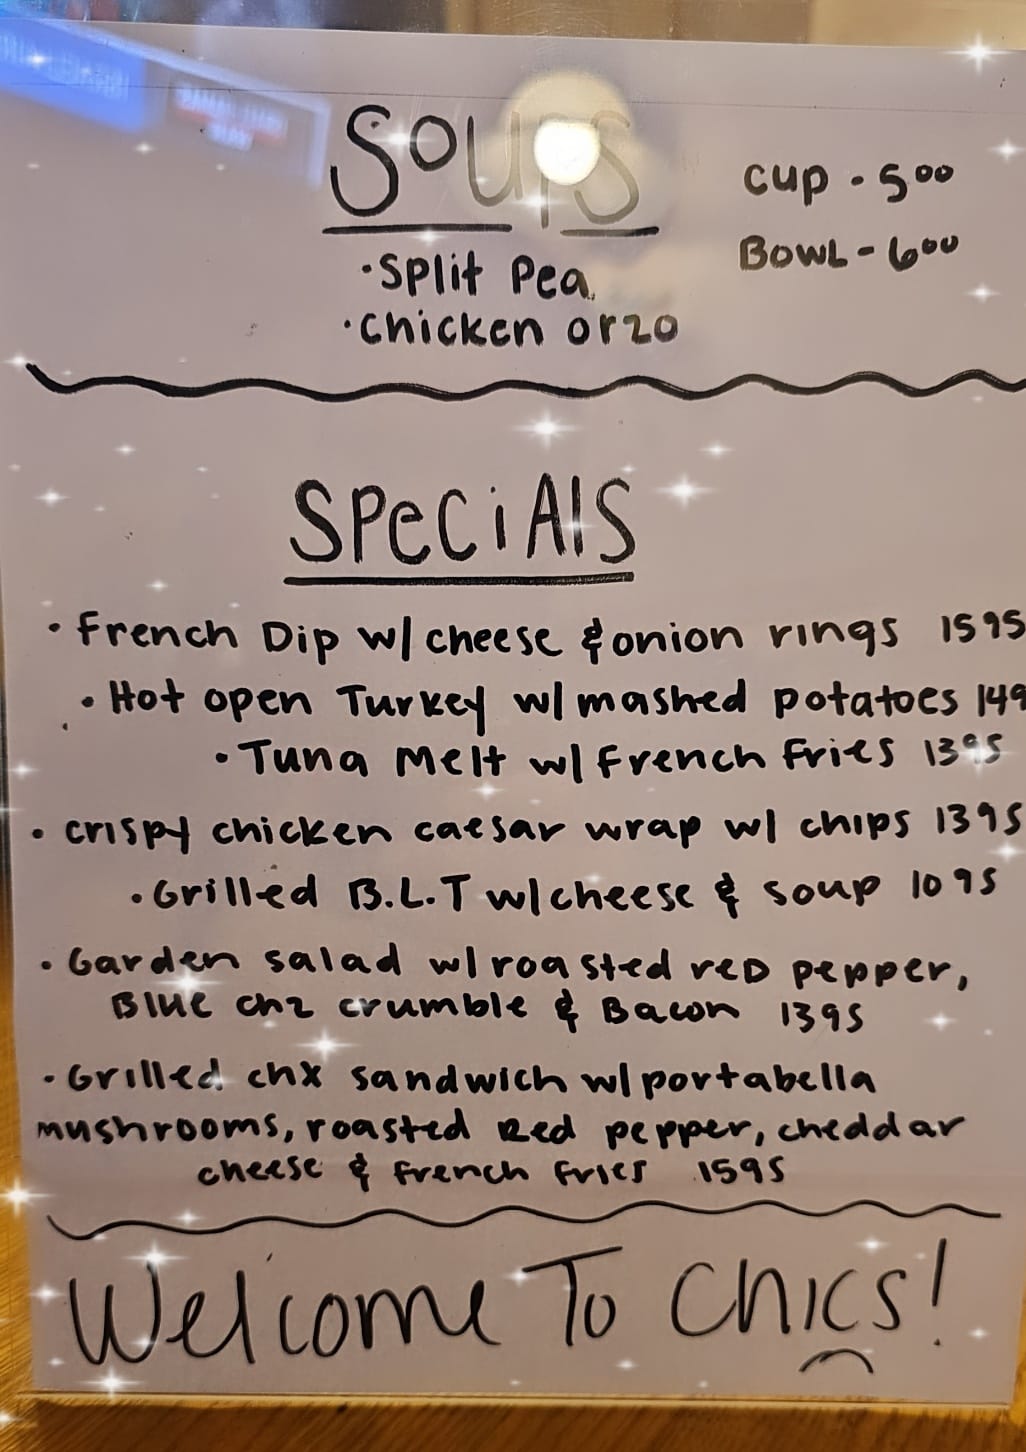 SOUPS
CUP - 5.00
BOWL - 6.00
• Split Pea
• Chicken orzo
SPeCiAlS
• French Dip w/ cheese & onion rings 1595
• Hot open Turkey w/ mashed potatoes 149
• Tuna Melt w/ French fries 1395
• crispy chicken caesar wrap w/ chips 1395
• Grilled B.L.T w/ cheese & soup 1095
• Garden salad w/ roasted red pepper,
Blue chz crumble & Bacon 1395
• Grilled chx sandwich w/ portabella
mushrooms, roasted Red pepper, cheddar
cheese & french fries 1595
Welcome To Chics!